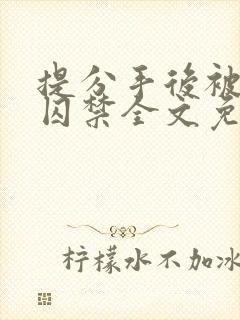 提分手後被
囚禁全文免
柠檬水不加冰